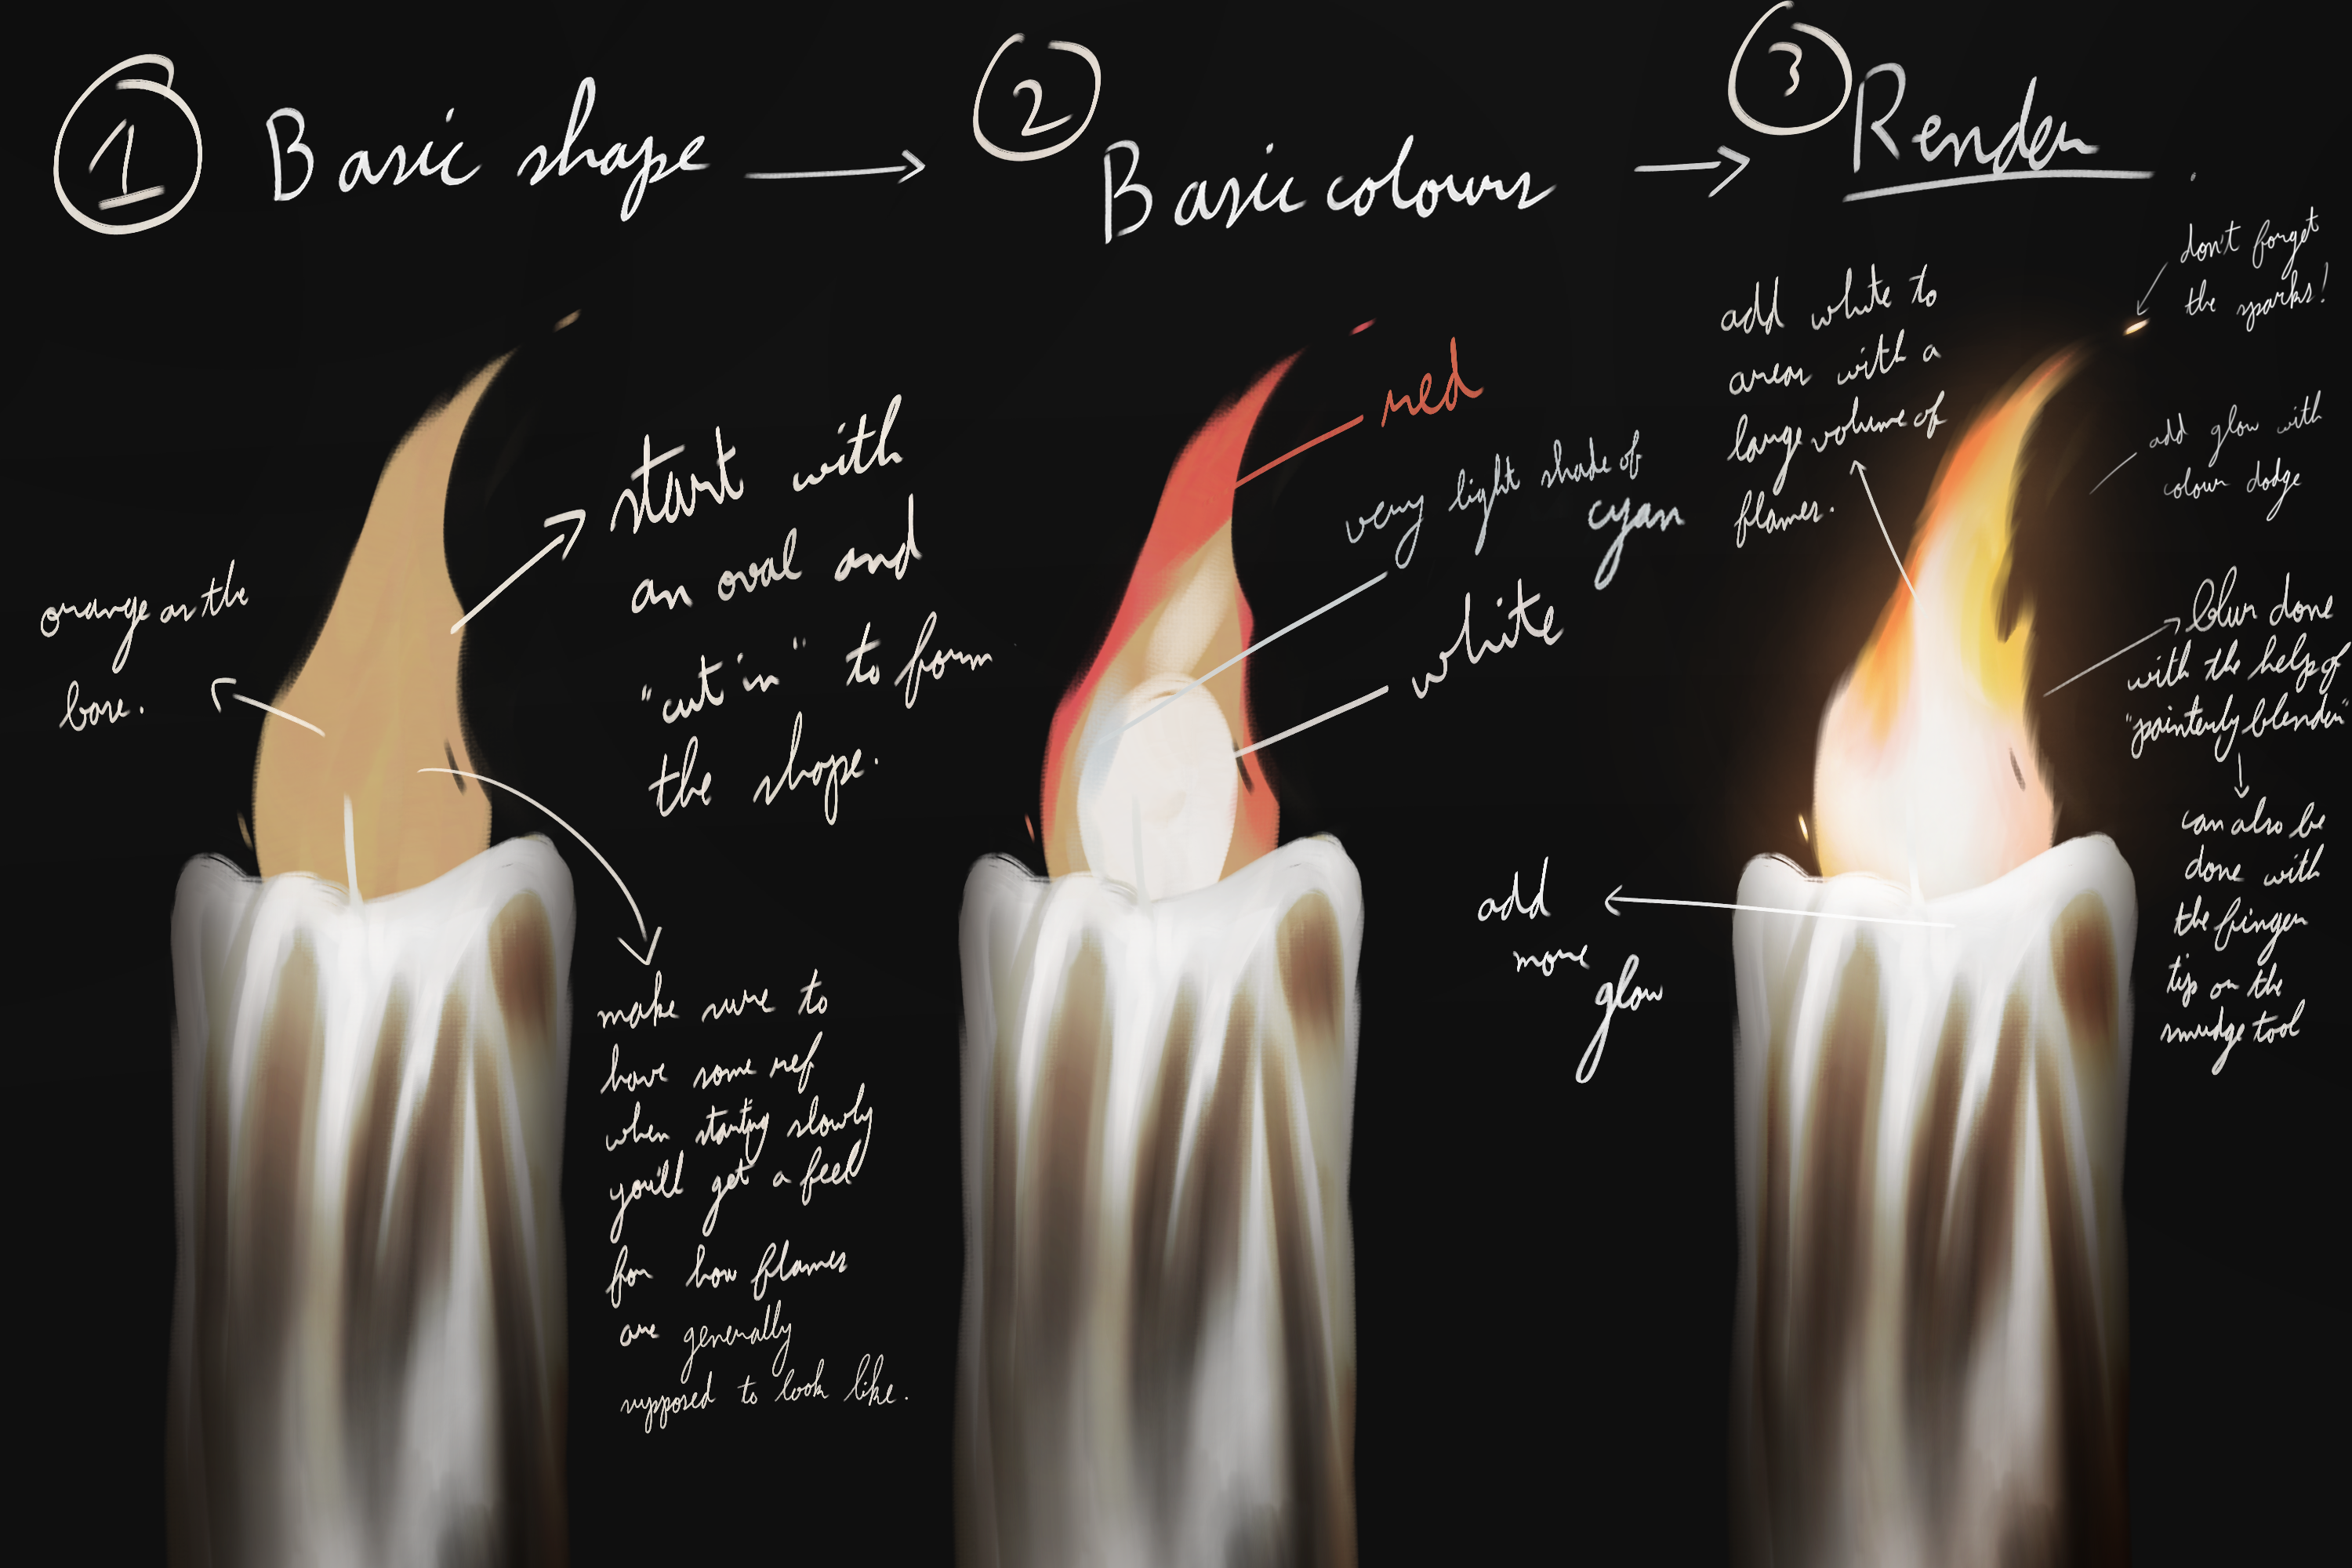 1 Basic shape
orange as the
base.
start with
an oval and
"cut in" to form
the shape.
make sure to
have some ref
when starting slowly
you'll get a feel
for how flames
are generally
supposed to look like.
2
Basic colours
red
very light shade of
cyan
white
3 Render.
add white to
areas with a
large volume of
flames.
don't forget
the sparks!
add glow with
colour dodge
blur done
with the help of
"painterly blender"
can also be
done with
the finger
tip on the
smudge tool
add
more
glow